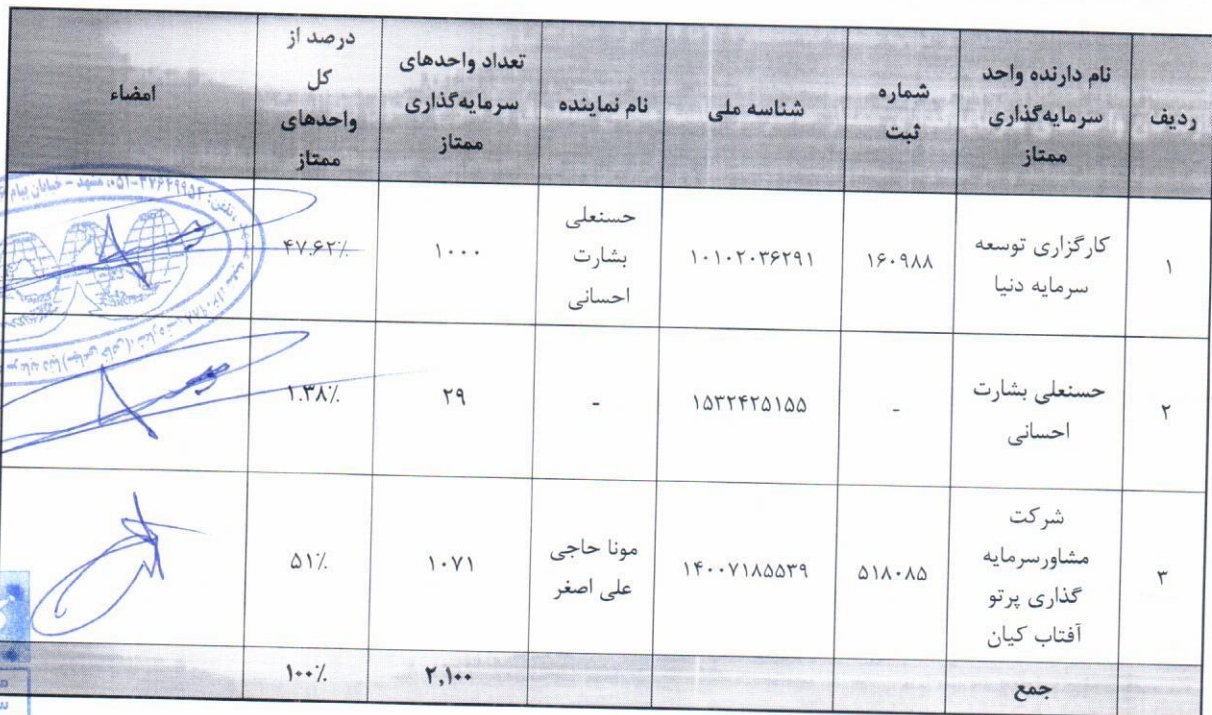 ردیف
نام دارنده واحد
سرمایه‌گذاری
ممتاز
شماره
ثبت
شناسه ملی
نام نماینده
تعداد واحدهای
سرمایه‌گذاری
ممتاز
درصد از
کل
واحدهای
ممتاز
امضاء
۱
کارگزاری توسعه
سرمایه دنیا
۱۶۰۹۸۸
۱۰۱۰۲۰۳۶۲۹۱
حسنعلی
بشارت
احسانی
۱۰۰۰
۴۷.۶۲٪
۲
حسنعلی بشارت
احسانی
-
۱۵۳۲۴۲۵۱۵۵
-
۲۹
۱.۳۸٪
۳
شرکت
مشاورسرمایه
گذاری پرتو
آفتاب کیان
۵۱۸۰۸۵
۱۴۰۰۷۱۸۵۵۳۹
مونا حاجی
علی اصغر
۱۰۷۱
۵۱٪
جمع
۲,۱۰۰
۱۰۰٪